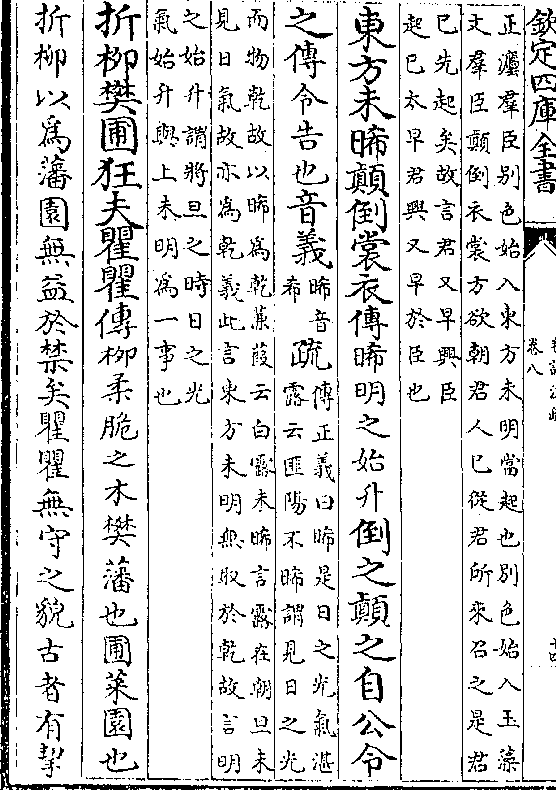 欽定四庫全書
卷八
正灋羣臣別色始入東方未明當起也別色始入玉藻
文羣臣顛倒衣裳方欲朝君人已從君所來召之是君
已先起矣故言君又早興臣
起已太早君興又早於臣也
東方未晞顛倒裳衣傳晞明之始升倒之顛之自公令
之傳令告也音義晞音希疏傳正義曰晞是日之光氣湛露云匪陽不晞謂見日之光
而物乾故以晞為乾蒹葭云白露未晞言露在朝旦未
見日氣故亦為乾義此言東方未明無取於乾故言明
之始升謂將旦之時日之光
氣始升與上未明為一事也
折柳樊圃狂夫瞿瞿傳柳柔脆之木樊藩也圃菜園也
折柳以為藩園無益於禁矣瞿瞿無守之貌古者有挈